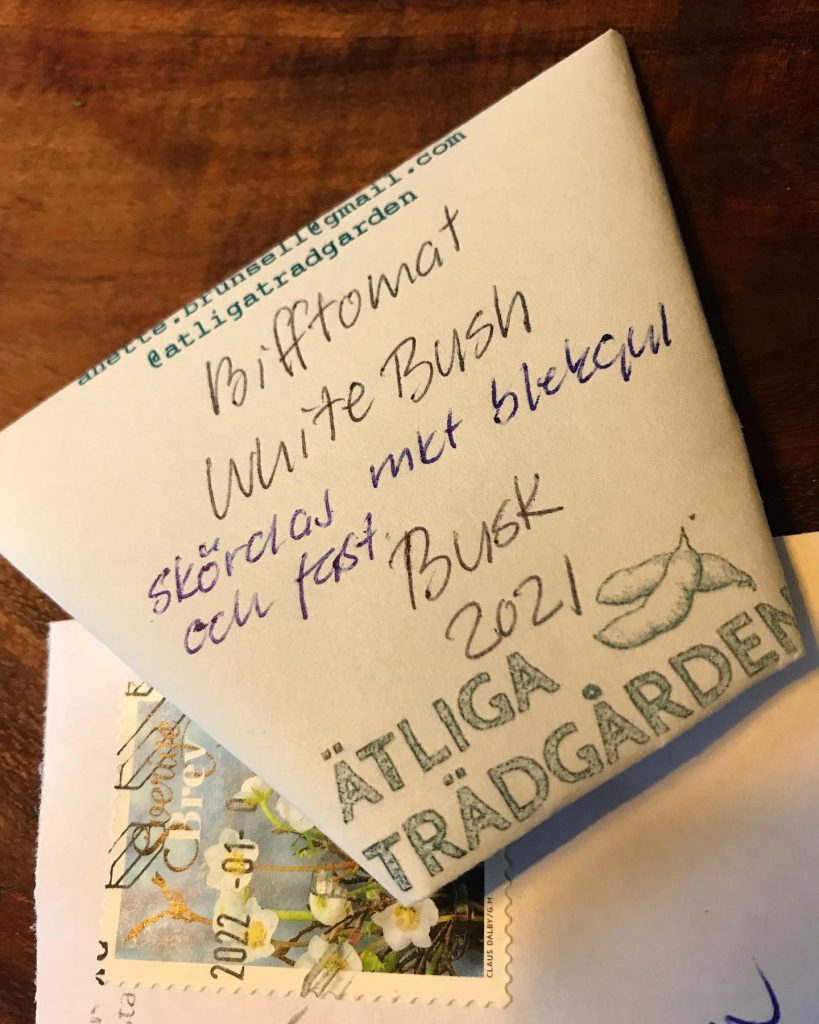 anette.brunsell@gmail.com
@atligatradgarden
Bifftomat
White Bush
skördas mkt blekgul
och fast.
Busk
2021
ÄTLIGA
TRÄDGÅRDEN
Sverige
Brev
2022-01-
CLAUS DALBY/G.M.